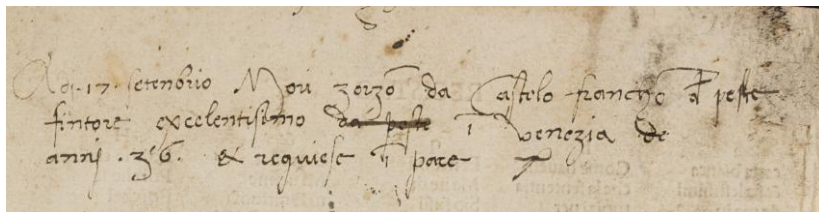 Adj. 17. setenbrio Morì zorzõ da Castelo francho d peste
fintore excelentisimo da peste ĩ venezia de
annj .36. & requiese ĩ pace